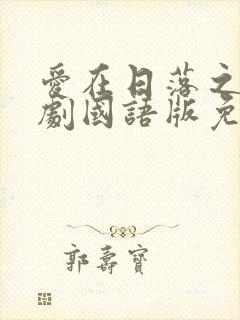 愛在日落之
劇國語版免
郭壽寶